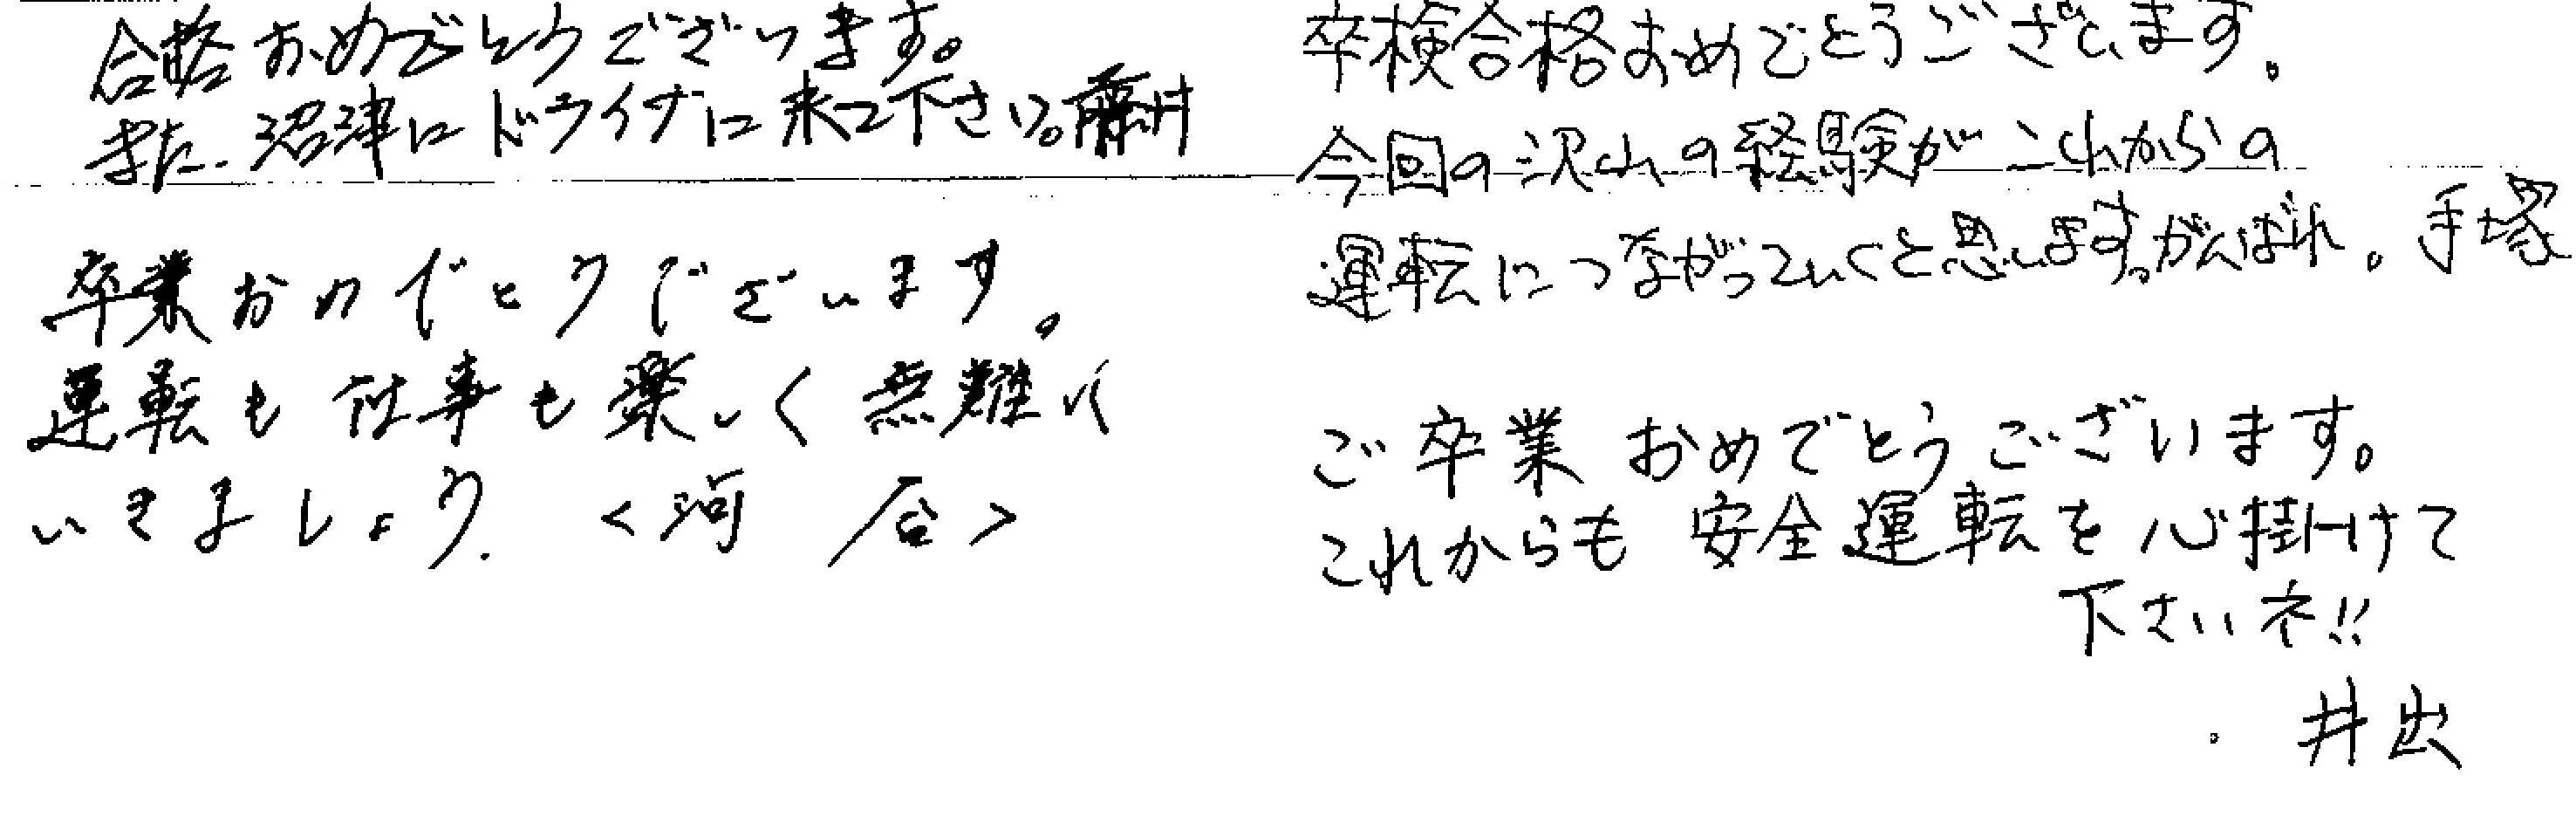 合格おめでとうございます。
また、沼津にドライブに来て下さい。藤井
卒業おめでとうございます。
運転も仕事も楽しく無難に
いきましょう. <河 合>
卒検合格おめでとうございます。
今回の沢山の経験がこれからの
運転につながっていくと思います。がんばれ。手塚
ご卒業おめでとうございます。
これからも安全運転を心掛けて
下さいネ!!
井出